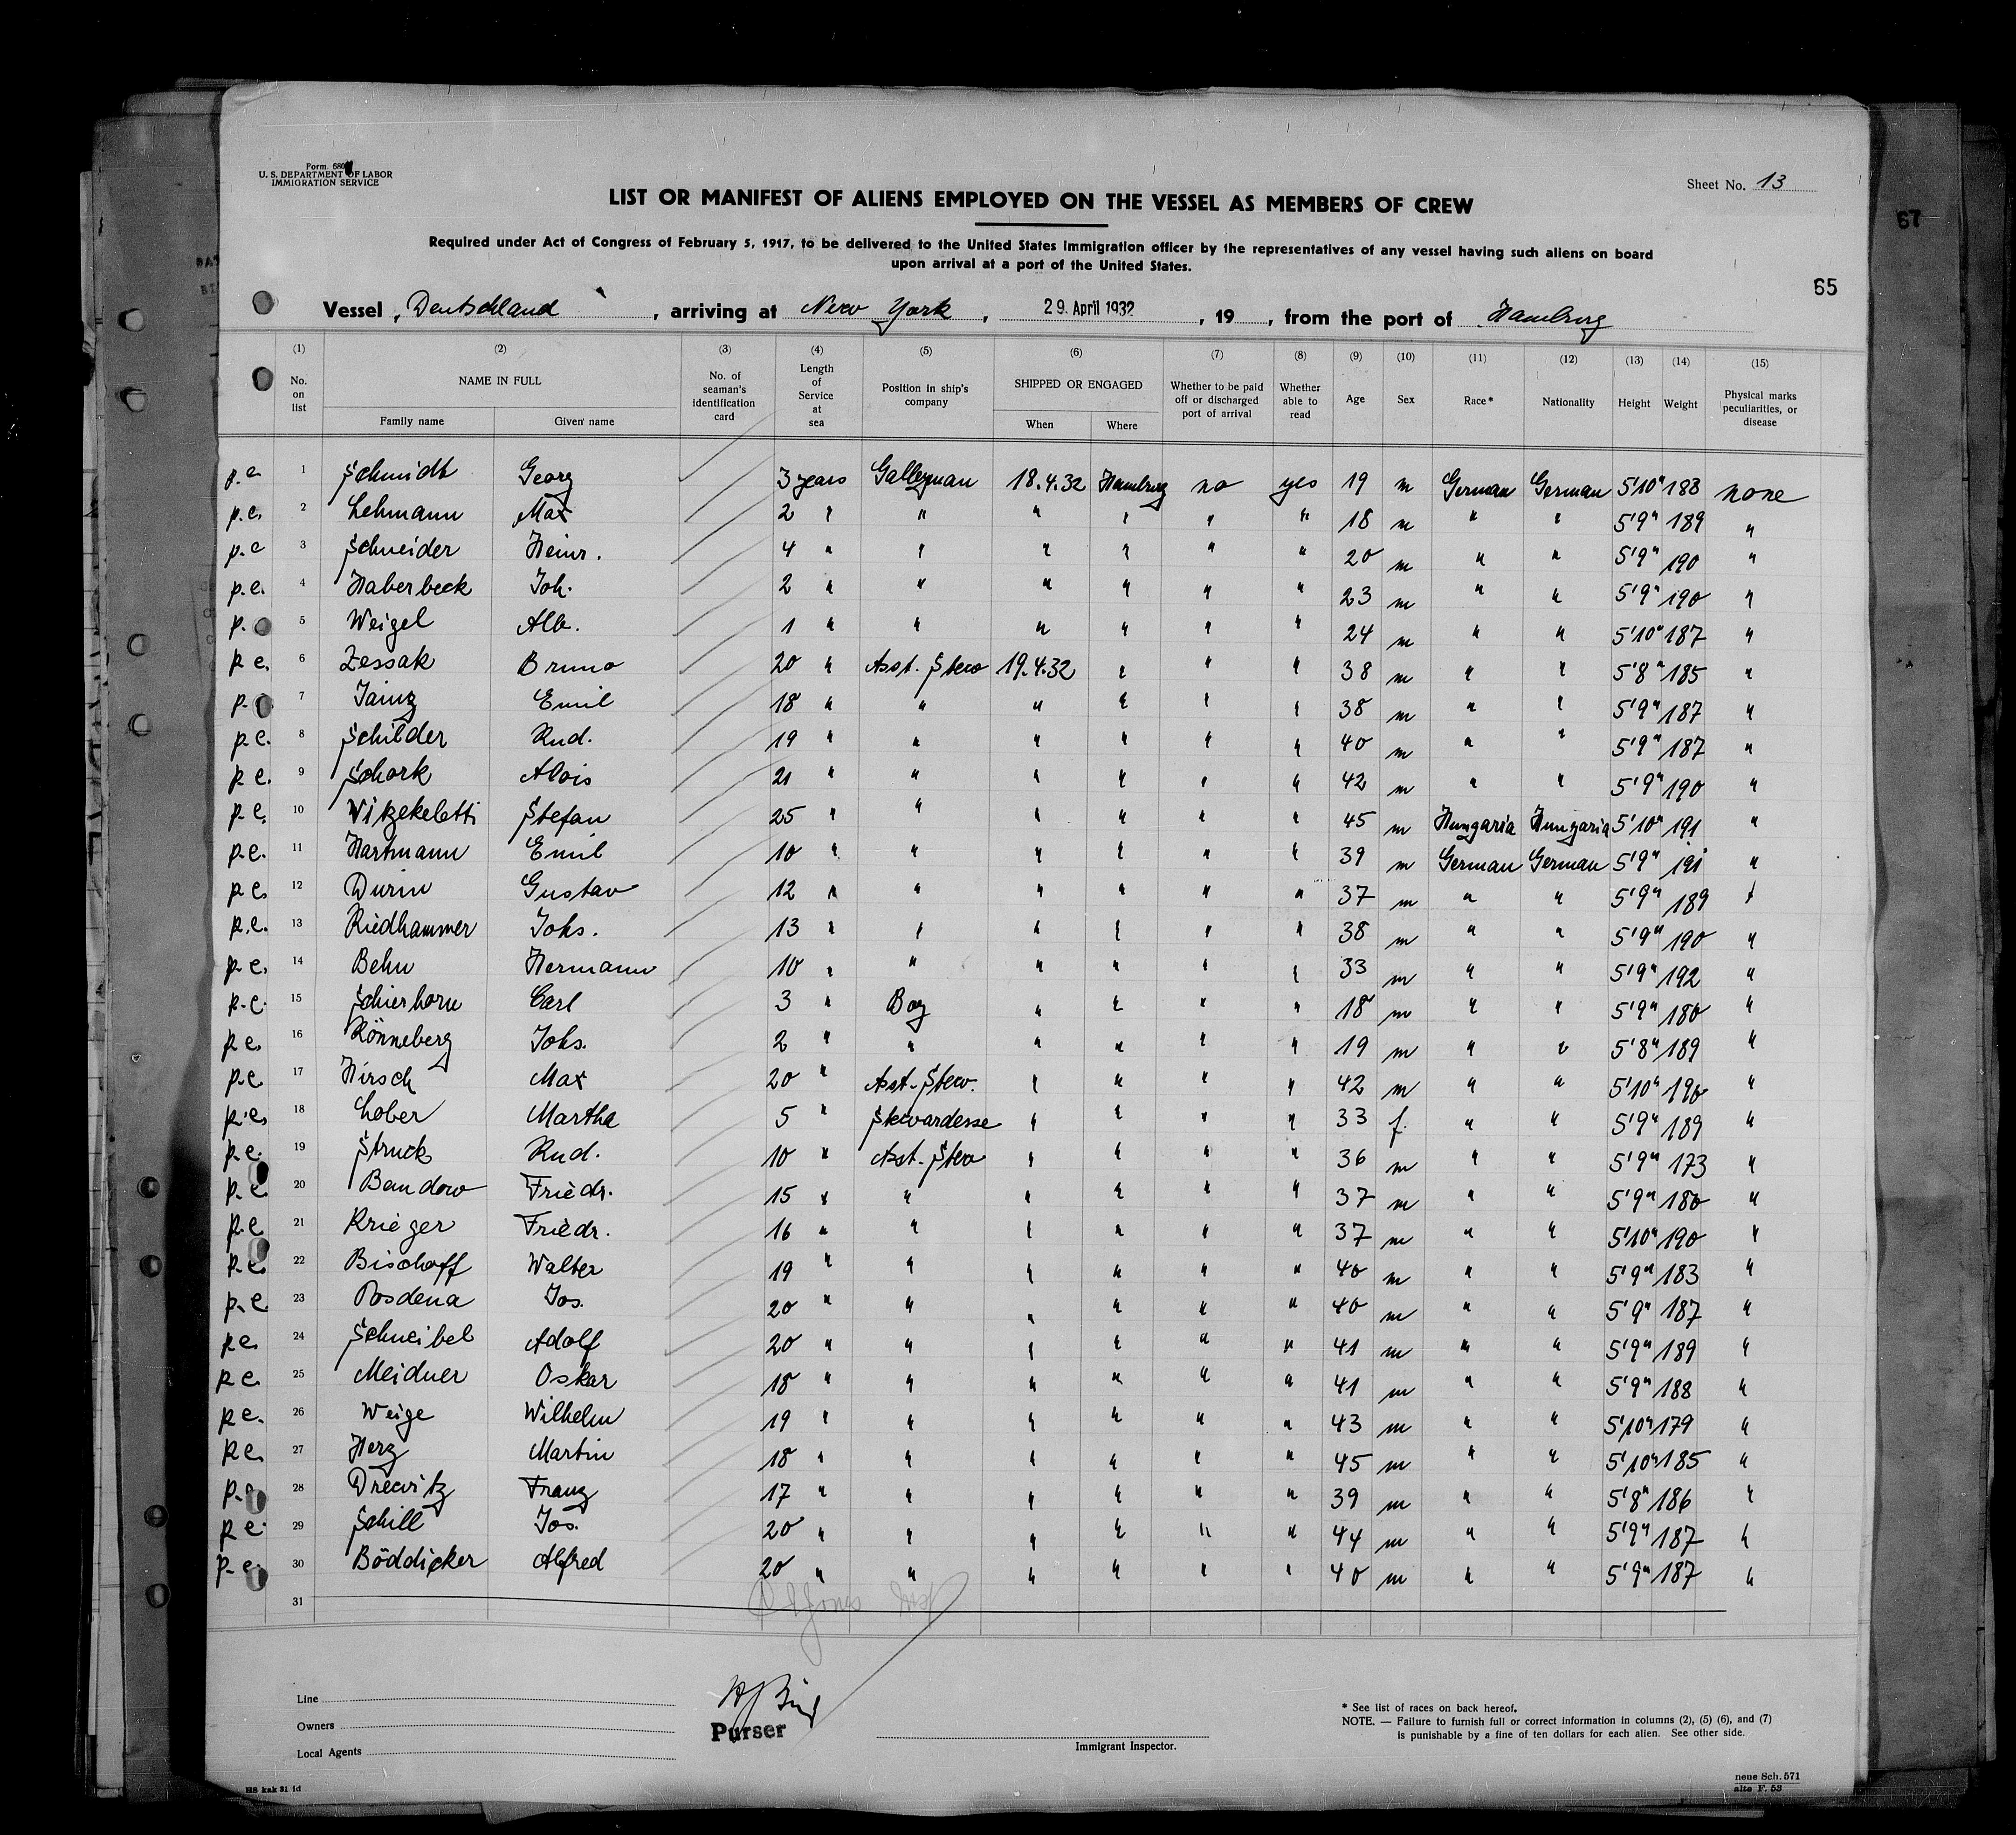 Form 680
U. S. DEPARTMENT OF LABOR
IMMIGRATION SERVICE
Sheet No. 13
LIST OR MANIFEST OF ALIENS EMPLOYED ON THE VESSEL AS MEMBERS OF CREW
Required under Act of Congress of February 5, 1917, to be delivered to the United States Immigration officer by the representatives of any vessel having such aliens on board
upon arrival at a port of the United States.
67
65
Vessel Deutschland, arriving at New York, 29. April 1932, 19, from the port of Hamburg
(1) (2) (3) (4) (5) (6) (7) (8) (9) (10) (11) (12) (13) (14) (15)
No. on list NAME IN FULL Family name Given name No. of seaman's identification card Length of Service at sea Position in ship's company SHIPPED OR ENGAGED When Where Whether to be paid off or discharged port of arrival Whether able to read Age Sex Race* Nationality Height Weight Physical marks peculiarities, or disease
p.e 1 Schmidt Georg 3 years Galleyman 18.4.32 Hamburg no yes 19 m German German 5'10" 183 none
p.e. 2 Lehmann Max 2 " " " " " " 18 m " " 5'9" 189 "
p.e 3 Schneider Heinr. 4 " " " " " " 20 m " " 5'9" 190 "
p.e. 4 Haberbeck Joh. 2 " " " " " " 23 m " " 5'9" 190 "
p.e 5 Weigel Alb. 1 " " " " " " 24 m " " 5'10" 187 "
p.e. 6 Zessak Bruno 20 " Asst. Stew 19.4.32 " " " 38 m " " 5'8" 185 "
p.e 7 Jainz Emil 18 " " " " " " 38 m " " 5'9" 187 "
p.e. 8 Schilder Rud. 19 " " " " " " 40 m " " 5'9" 187 "
p.e. 9 Schork Alois 21 " " " " " " 42 m " " 5'9" 190 "
p.e. 10 Vitzekeletti Stefan 25 " " " " " " 45 m Hungaria Hungaria 5'10" 191 "
p.e. 11 Hartmann Emil 10 " " " " " " 39 m German German 5'9" 191 "
p.e. 12 Durin Gustav 12 " " " " " " 37 m " " 5'9" 189 "
p.e. 13 Riedhammer Johs. 13 " " " " " " 38 m " " 5'9" 190 "
p.e. 14 Behn Hermann 10 " " " " " " 33 m " " 5'9" 192 "
p.e. 15 Schierhorn Carl 3 " Boy " " " " 18 m " " 5'9" 180 "
p.e. 16 Rönneberg Johs. 2 " " " " " " 19 m " " 5'8" 189 "
p.e 17 Hirsch Max 20 " Asst. Stew. " " " " 42 m " " 5'10" 190 "
p.e. 18 Lober Martha 5 " Stewardesse " " " " 33 f. " " 5'9" 189 "
p.e. 19 Struck Rud. 10 " Asst. Stew " " " " 36 m " " 5'9" 173 "
p.e. 20 Bandow Friedr. 15 " " " " " " 37 m " " 5'9" 180 "
p.e 21 Krieger Friedr. 16 " " " " " " 37 m " " 5'10" 190 "
p.e. 22 Bischoff Walter 19 " " " " " " 40 m " " 5'9" 183 "
p.e 23 Posdena Jos. 20 " " " " " " 40 m " " 5'9" 187 "
p.e. 24 Schneibel Adolf 20 " " " " " " 41 m " " 5'9" 189 "
p.e. 25 Meidner Oskar 18 " " " " " " 41 m " " 5'9" 188 "
p.e. 26 Weige Wilhelm 19 " " " " " " 43 m " " 5'10" 179 "
p.e. 27 Herz Martin 18 " " " " " " 45 m " " 5'10" 185 "
p.e 28 Drewitz Franz 17 " " " " " " 39 m " " 5'8" 186 "
p.e. 29 Schill Jos. 20 " " " " " " 44 m " " 5'9" 187 "
p.e. 30 Böddicker Alfred 20 " " " " " " 40 m " " 5'9" 187 "
31
Line
Owners
Local Agents
Purser
Immigrant Inspector.
* See list of races on back hereof.
NOTE. — Failure to furnish full or correct information in columns (2), (5) (6), and (7)
is punishable by a fine of ten dollars for each alien. See other side.
HS kak 31 1d
neue Sch. 571
alte F. 53